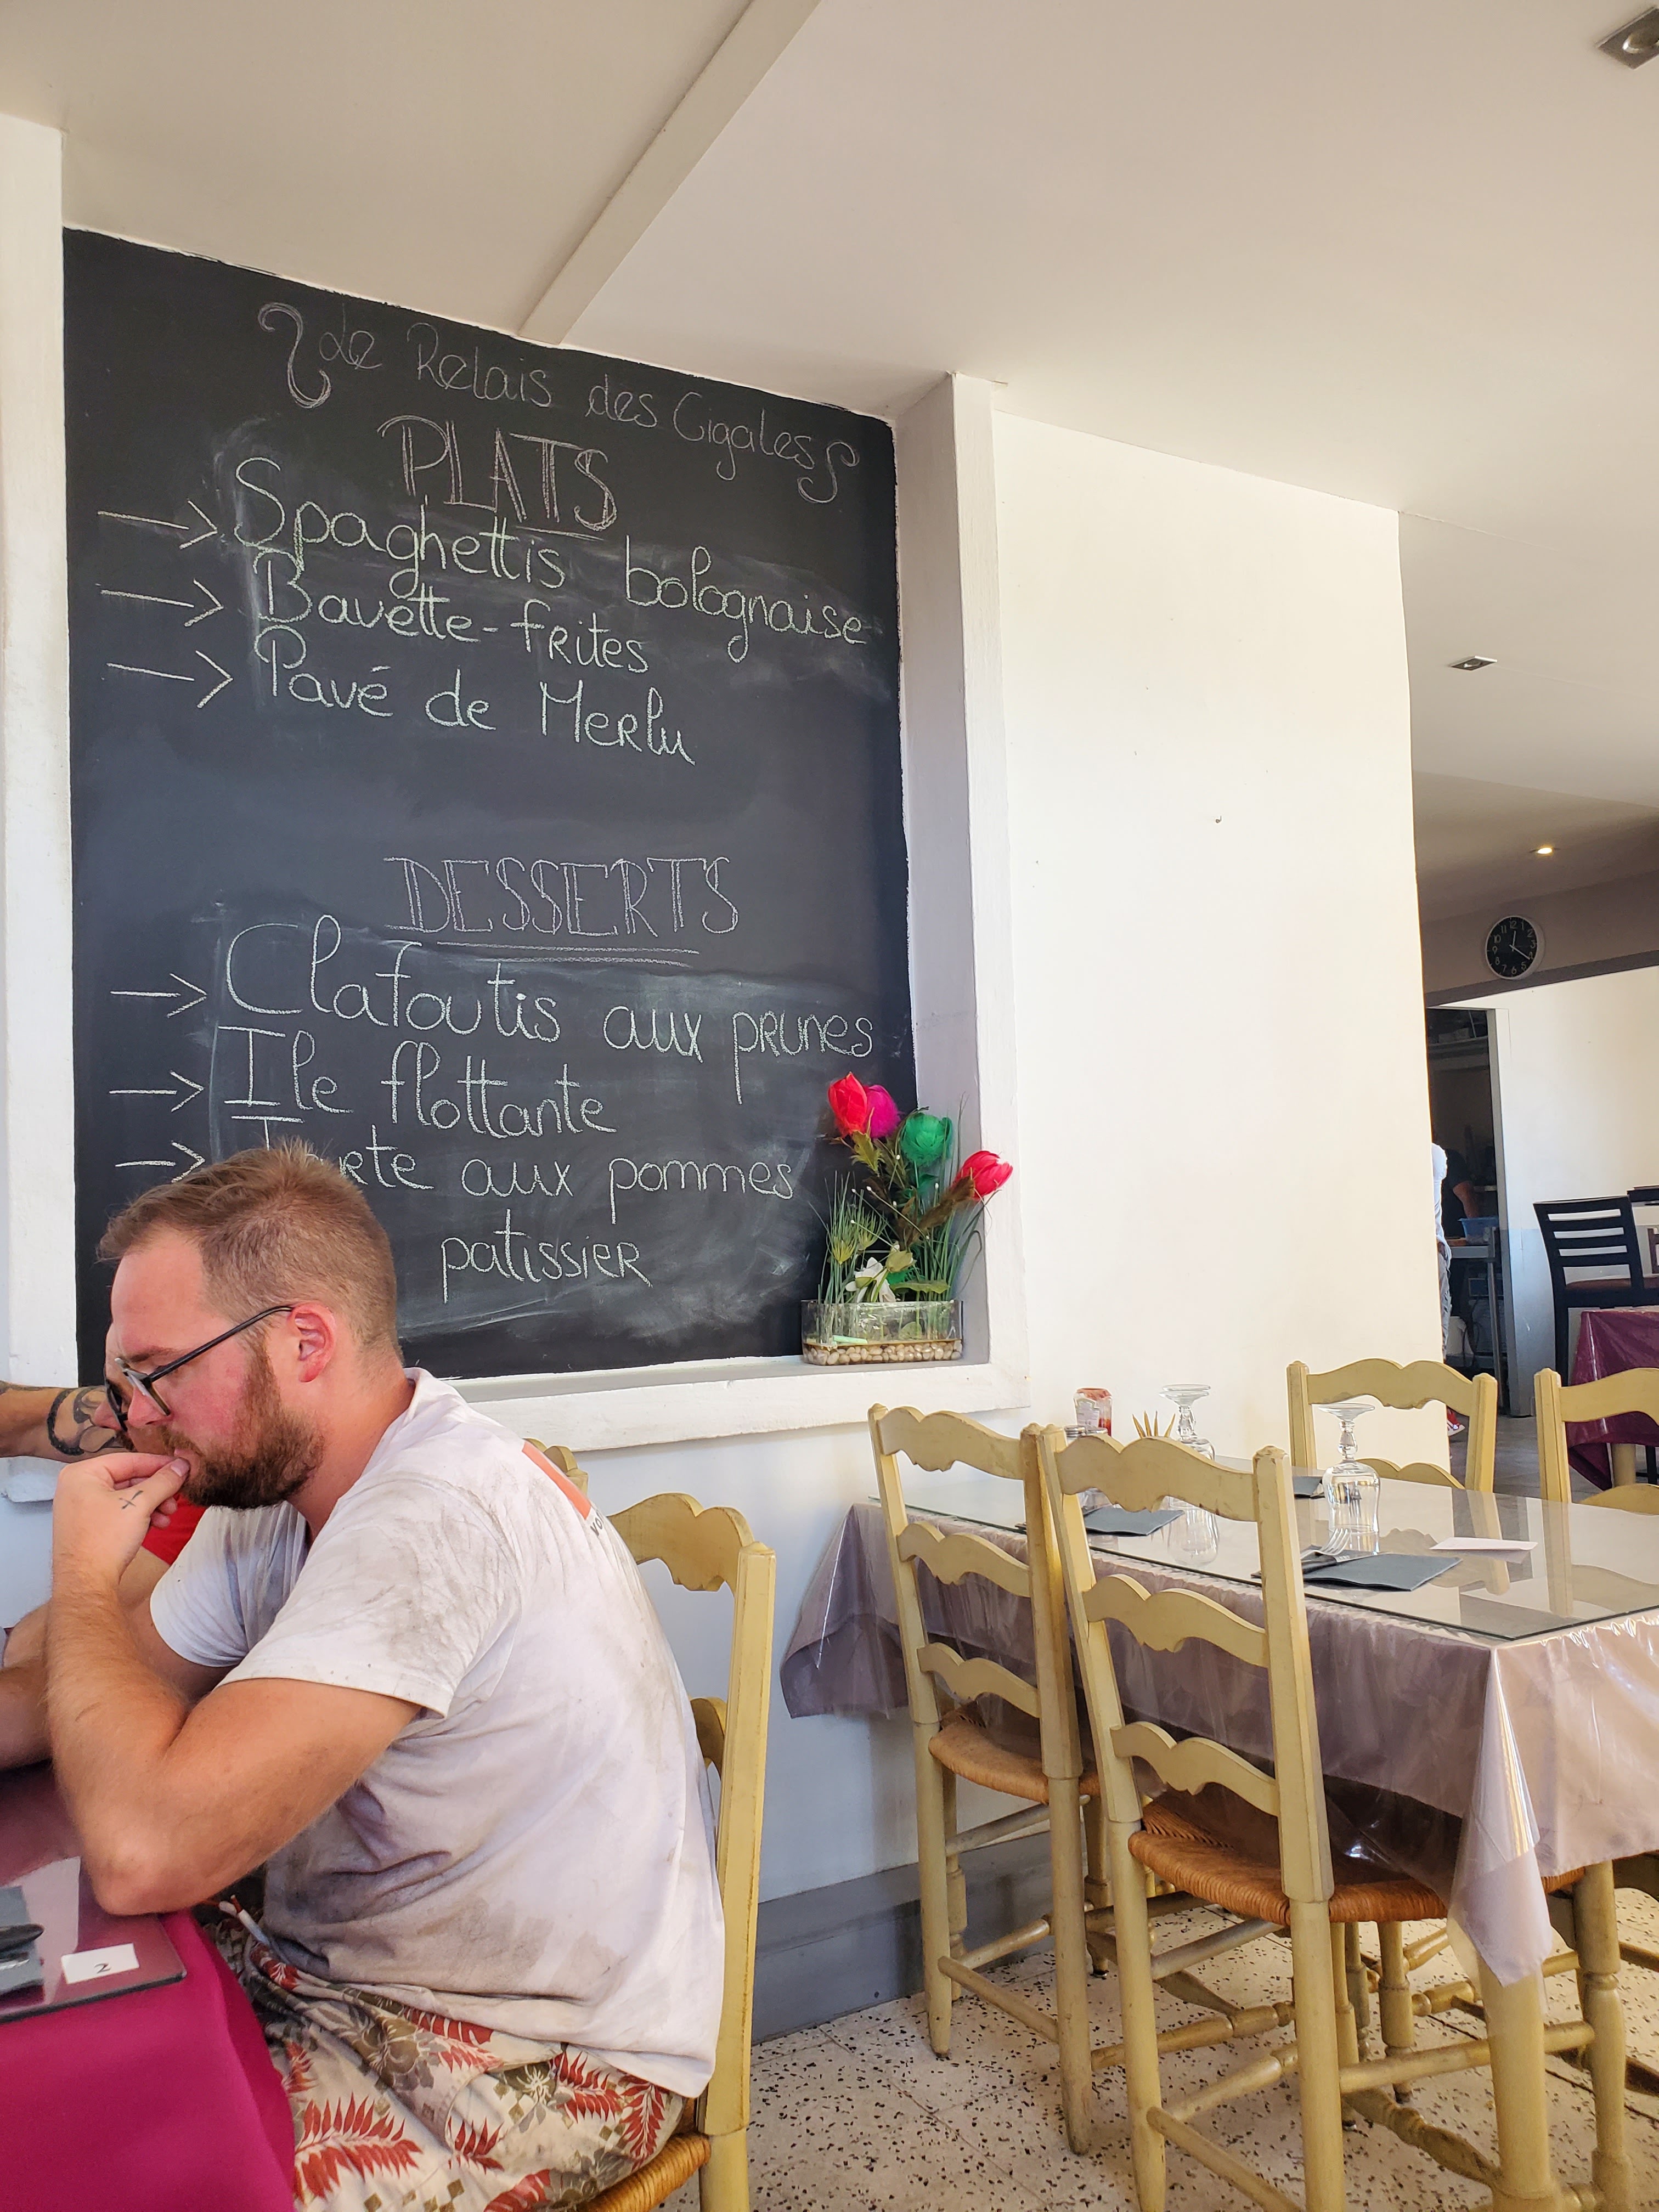 Le Relais des Cigales
PLATS
Spaghettis bolognaise
Bavette-frites
Pavé de Merlu
DESSERTS
Clafoutis aux prunes
Ile flottante
aux pommes
patissier
2